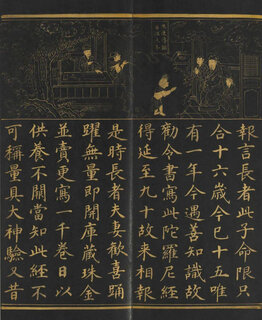 報言長者此子命限只
合十六歲今巳十五唯
有一年今遇善知識故
勸令書寫此陀羅尼經
得延至九十故來相報
是時長者夫妻歡喜踊
躍無量即開庫藏珠金
並賣更寫一千卷日以
供養不闕當知此經不
可稱量具大神驗又昔